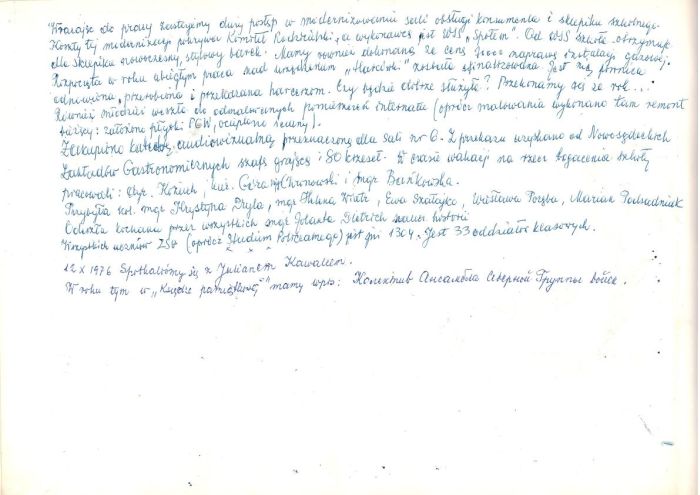 Wracając do pracy zastajemy duży postęp w modernizowaniu sali obsługi konsumenta i sklepiku szkolnego.
Koszty tej modernizacji pokrywa Komitet Rodzicielski, a wykonawcą jest WSS „Społem”. Od WSS szkoła otrzymuje
dla sklepiku nowoczesny, stylowy barek. Mamy również dokonaną za cenę naprawę instalacji gazowej.
Rozpoczęta w roku ubiegłym praca nad urządzeniem „Harcówki” została sfinalizowana. Jest piwnica
odnowiona, przerobiona i przekazana harcerzom. Czy będzie dobrze służyła? Przekonamy się za rok...
Również młodzież weszła do odmalowanych pomieszczeń internatu (oprócz malowania wykonano tam remont
bieżący: założono płytki PCW, ocieplono ściany).
Zakupiono katedrę audiowizualną przeznaczoną dla sali nr 6. Z przekazu uzyskano od Nowosądeckich
Zakładów Gastronomicznych szafę grającą i 80 krzeseł. W czasie wakacji na rzecz bogacenia szkoły
pracowali: dyr. Kożuch, inż. Chronowski i mgr Bańkowska.
Przybyła kol. mgr Krystyna Dryla, mgr Halina Kmak, Ewa Szatajko, Wiesława Poręba, Marian Podsadniuk
Odeszła kochana przez wszystkich mgr Jolanta Dietrich naucz. historii
Wszystkich uczniów ZSG (oprócz Studium Policealnego) jest już 1304. Jest 33 oddziałów klasowych.
12 X 1976 Spotkaliśmy się z Julianem Kawalcem.
W roku tym w „Księdze pamiątkowej” mamy wpis: Колектив Ансамбля Северной Группы войск.